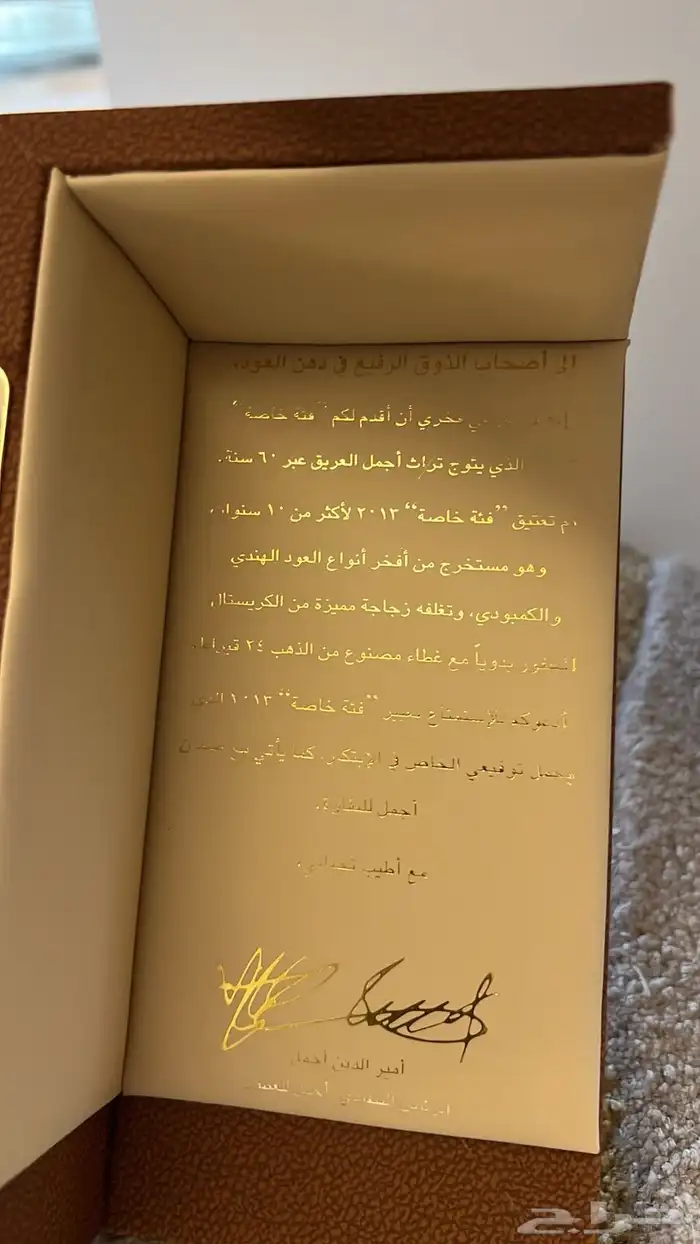 الى أصحاب الذوق الرفيع في دهن العود،
فخري أن أقدم لكم "فئة خاصة"
الذي يتوج تراث أجمل العريق عبر ٦٠ سنة.
تعتيق "فئة خاصة" ٢٠١٣ لأكثر من ١٠
وهو مستخرج من أفخر أنواع العود الهندي
والكمبودي، وتغلفه زجاجة مميزة من الكريستال
يدوياً مع غطاء مصنوع من الذهب ٢٤ قيراط
"فئة خاصة" ٢٠١٣
يحمل توقيعي الخاص في الإبتكار، كما يأتي مع
أجمل
مع أطيب
أمير الدين أجمل